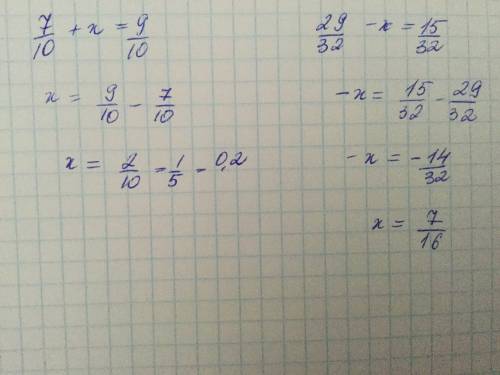 7/10 + x = 9/10
x = 9/10 - 7/10
x = 2/10 = 1/5 = 0,2
29/32 - x = 15/32
-x = 15/32 - 29/32
-x = -14/32
x = 7/16